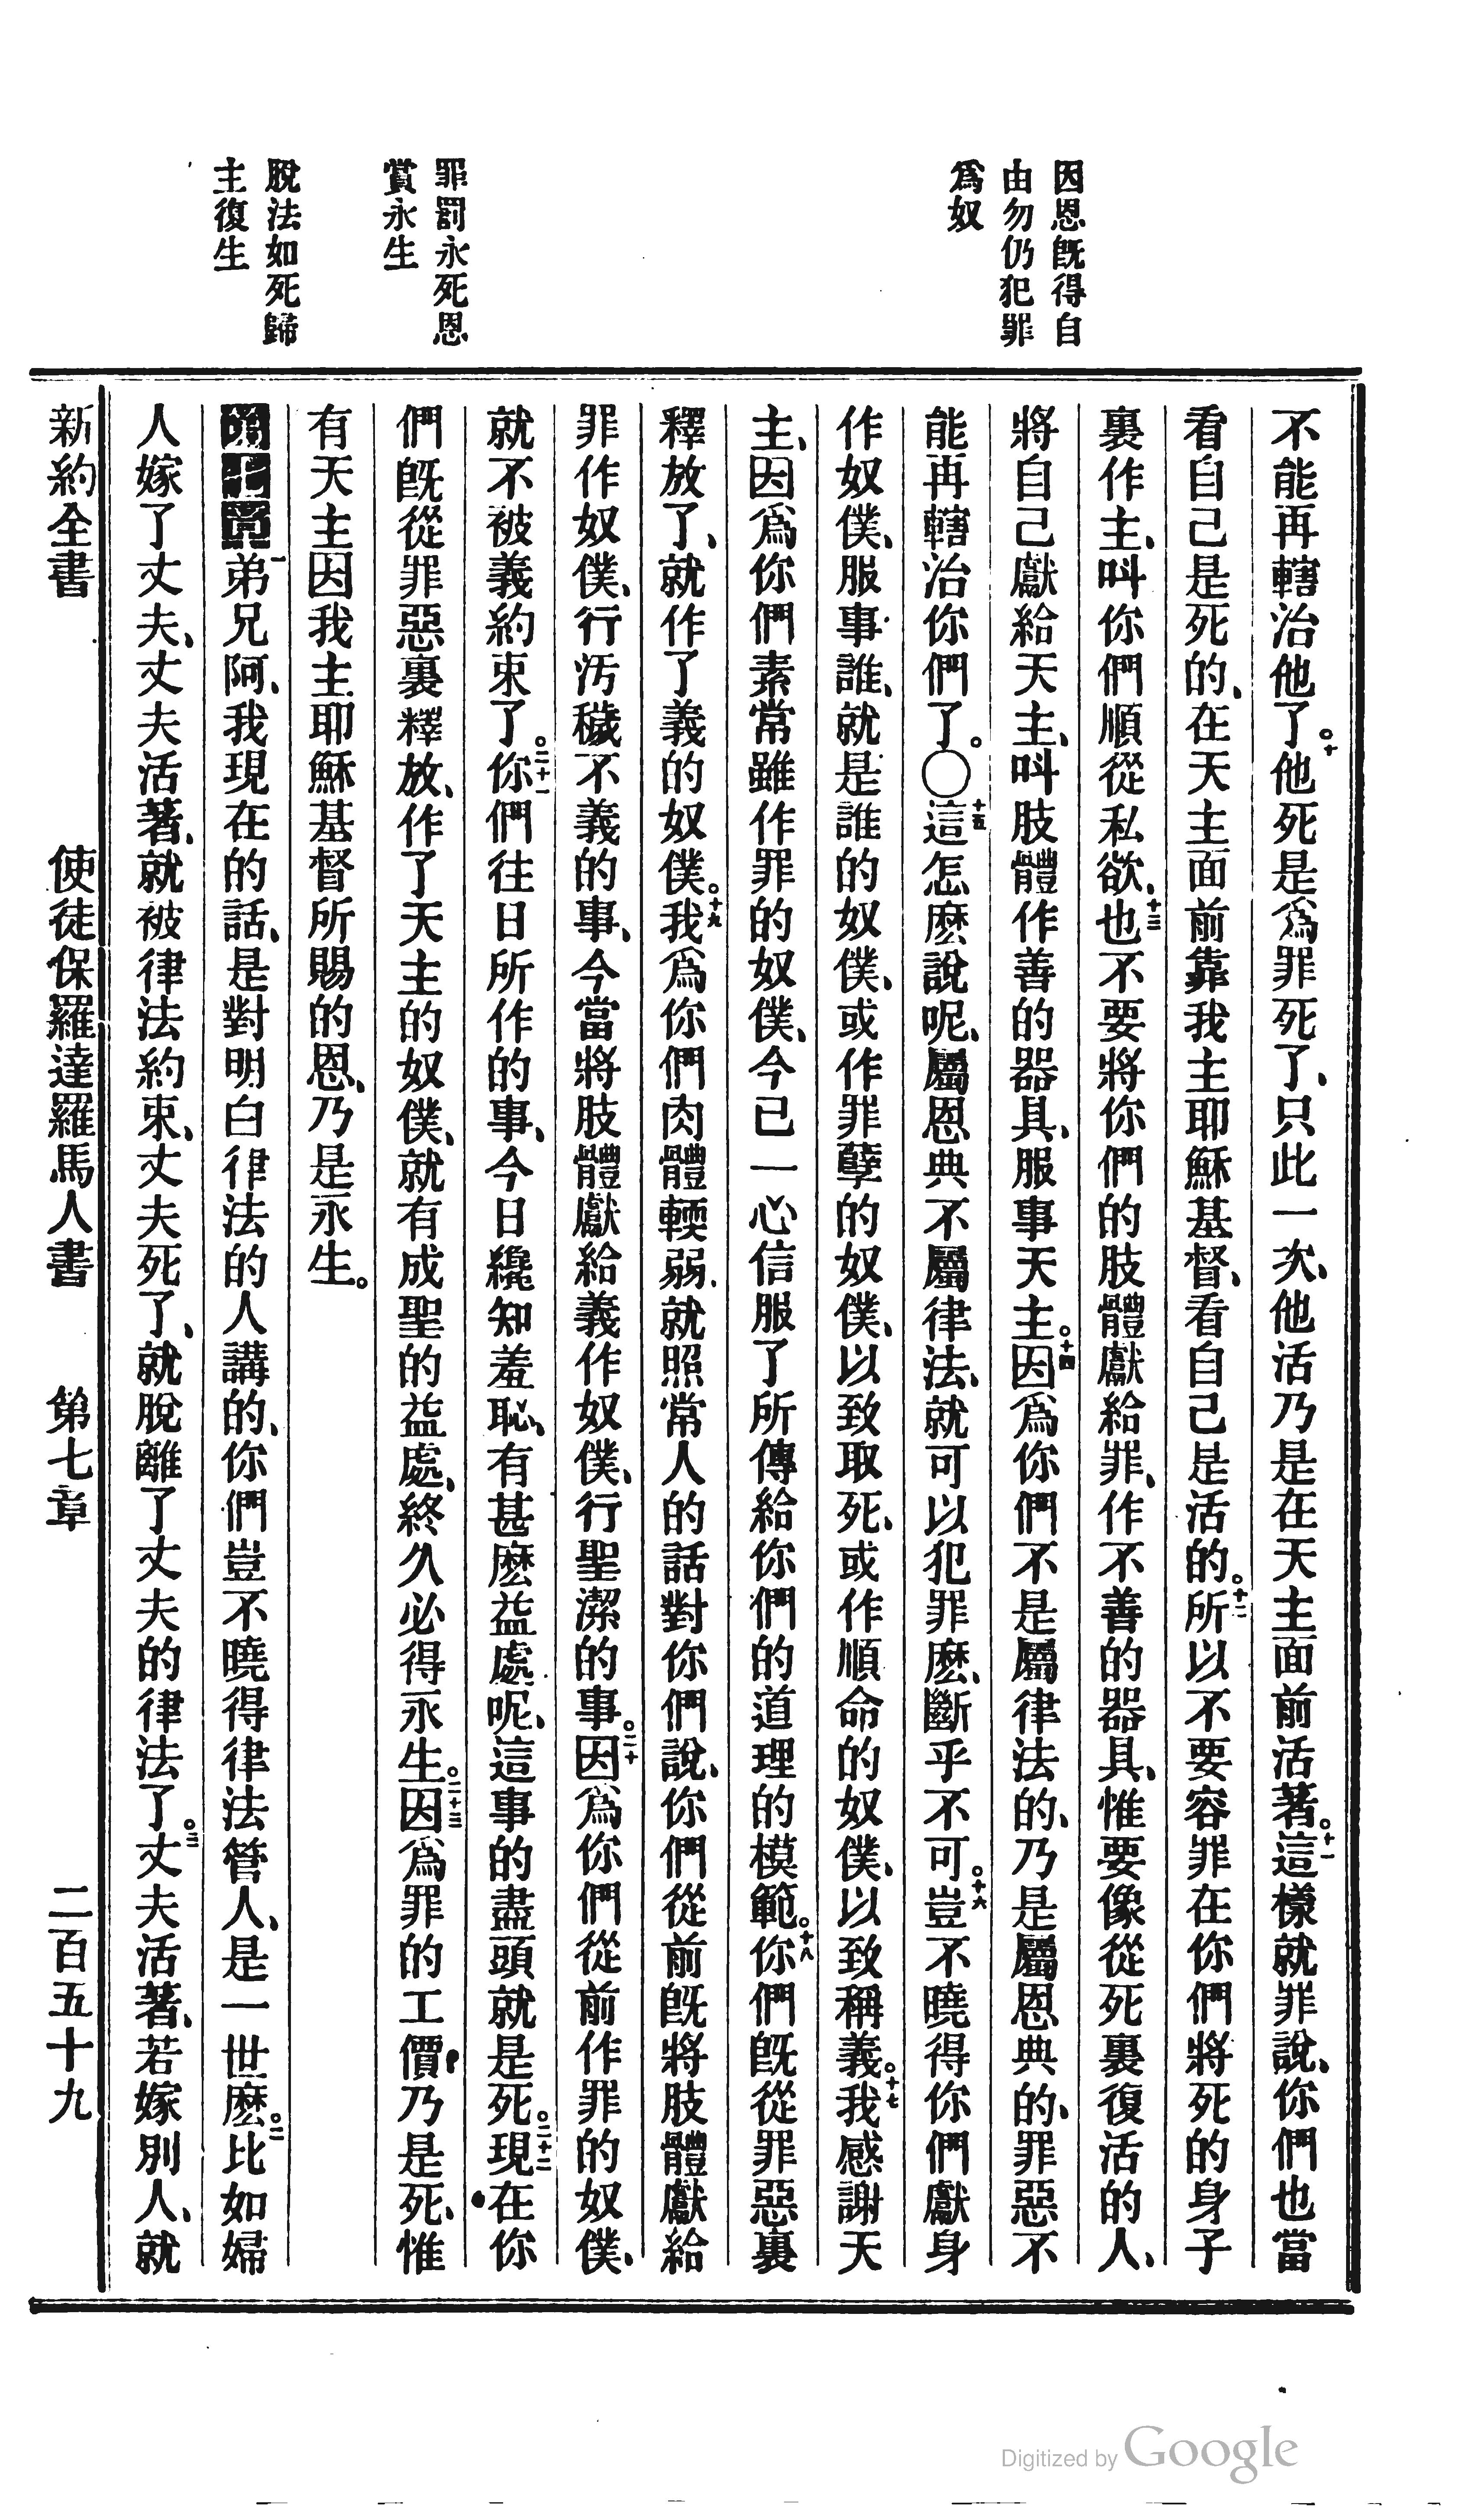 因恩旣得自
由勿仍犯罪
爲奴
罪罰永死恩
賞永生
脫法如死歸
主復生
不能再轄治他了。十他死是爲罪死了、只此一次、他活乃是在天主面前活著。十一這樣就罪說、你們也當
看自己是死的、在天主面前靠我主耶穌基督、看自己是活的。十二所以不要容罪在你們將死的身子
裏作主、叫你們順從私欲、十三也不要將你們的肢體獻給罪、作不善的器具、惟要像從死裏復活的人、
將自己獻給天主、叫肢體作善的器具、服事天主。十四因爲你們不是屬律法的、乃是屬恩典的、罪惡不
能再轄治你們了。〇十五這怎麽說呢、屬恩典不屬律法、就可以犯罪麽、斷乎不可。十六豈不曉得你們獻身
作奴僕、服事誰、就是誰的奴僕、或作罪孽的奴僕、以致取死、或作順命的奴僕、以致稱義。十七我感謝天
主、因爲你們素常雖作罪的奴僕、今已一心信服了所傳給你們的道理的模範。十八你們旣從罪惡裏
釋放了、就作了義的奴僕。十九我爲你們肉體輭弱、就照常人的話對你們說、你們從前旣將肢體獻給
罪作奴僕、行汚穢不義的事、今當將肢體獻給義作奴僕、行聖潔的事。二十因爲你們從前作罪的奴僕、
就不被義約束了。二十一你們往日所作的事、今日纔知羞恥、有甚麽益處呢、這事的盡頭就是死。二十二現在你
們旣從罪惡裏釋放、作了天主的奴僕、就有成聖的益處、終久必得永生。二十三因爲罪的工價、乃是死、惟
有天主因我主耶穌基督所賜的恩、乃是永生。
一弟兄阿、我現在的話、是對明白律法的人講的、你們豈不曉得律法管人、是一世麽。二比如婦
人嫁了丈夫、丈夫活著、就被律法約束、丈夫死了、就脫離了丈夫的律法了。三丈夫活著、若嫁別人、就
新約全書 使徒保羅達羅馬人書 第七章 二百五十九
Digitized by Google